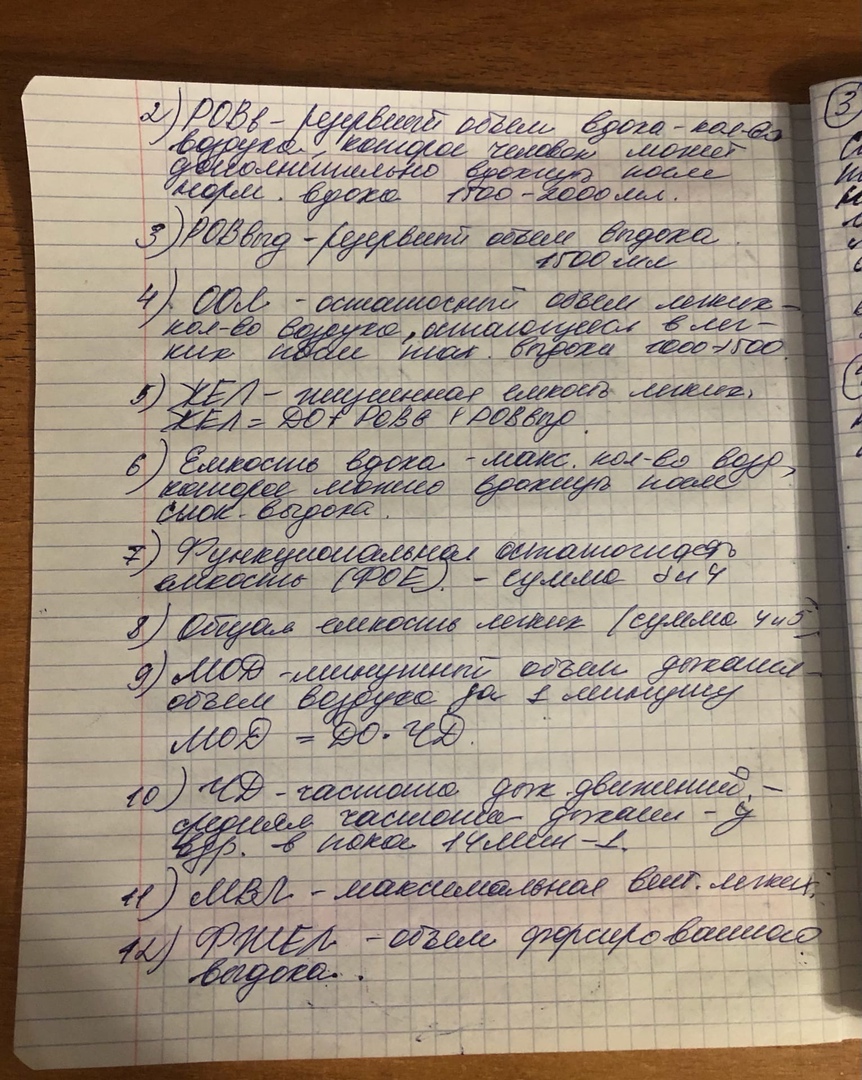 2) РОВв - резервный объем вдоха - кол-во
воздуха, которое человек может
дополнительно вдохнуть после
норм. вдоха 1500-2000 мл.
3) РОВвыд - резервный объем выдоха
1500 мл
4) ООЛ - остаточный объем легких -
кол-во воздуха, остающееся в лег-
ких после выдоха 1000-1500.
5) ЖЕЛ - жизненная емкость легких.
ЖЕЛ = ДО + РОВв + РОВвыд.
6) Емкость вдоха - макс. кол-во возд,
которое можно вдохнуть после
спок. выдоха.
7) Функциональная остаточная
емкость (ФОЕ). - сумма и 4
8) Общая емкость легких (сумма 4 и 5
9) МОД - минутный объем дыхания -
объем воздуха за 1 минуту
МОД = ДО · ЧД.
10) ЧД - частота дых. движений, -
средняя частота дыхания - у
взр. в покое 14 мин -1.
11) МВЛ - максимальная вент. легких,
12) ФЖЕЛ - объем форсированного
выдоха.
3